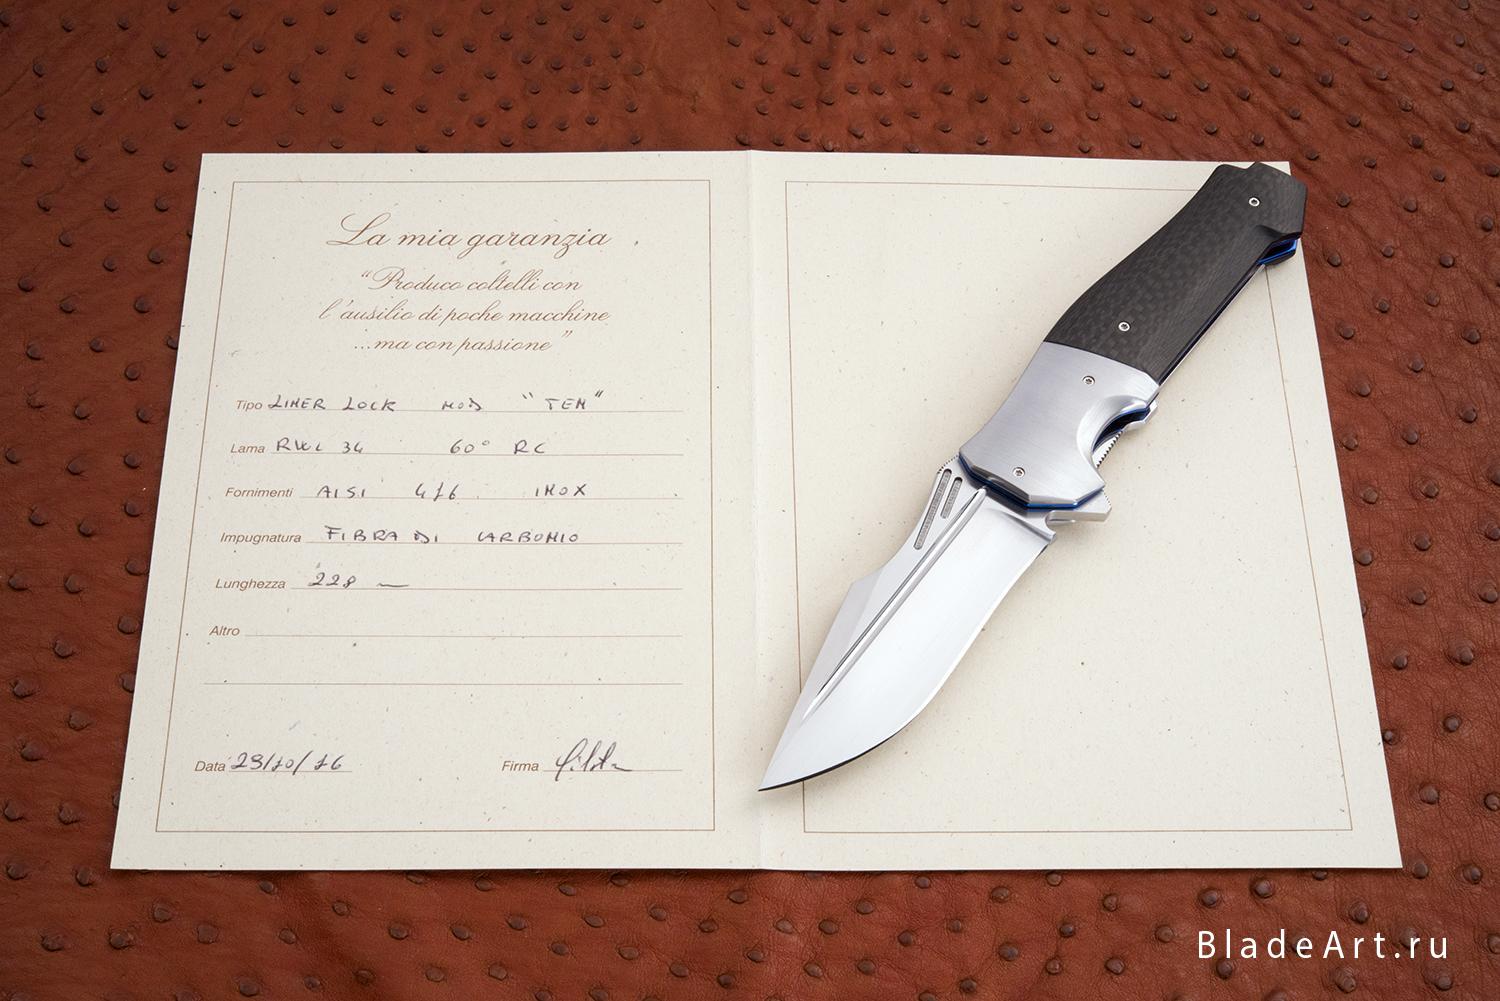 La mia garanzia
“Produco coltelli con
l'ausilio di poche macchine
...ma con passione”
Tipo LINER LOCK MOD "TEN"
Lama RWL 34 60° RC
Fornimenti AISI 416 INOX
Impugnatura FIBRA DI CARBONIO
Lunghezza 228
Altro
Data 29/10/16 Firma
BladeArt.ru